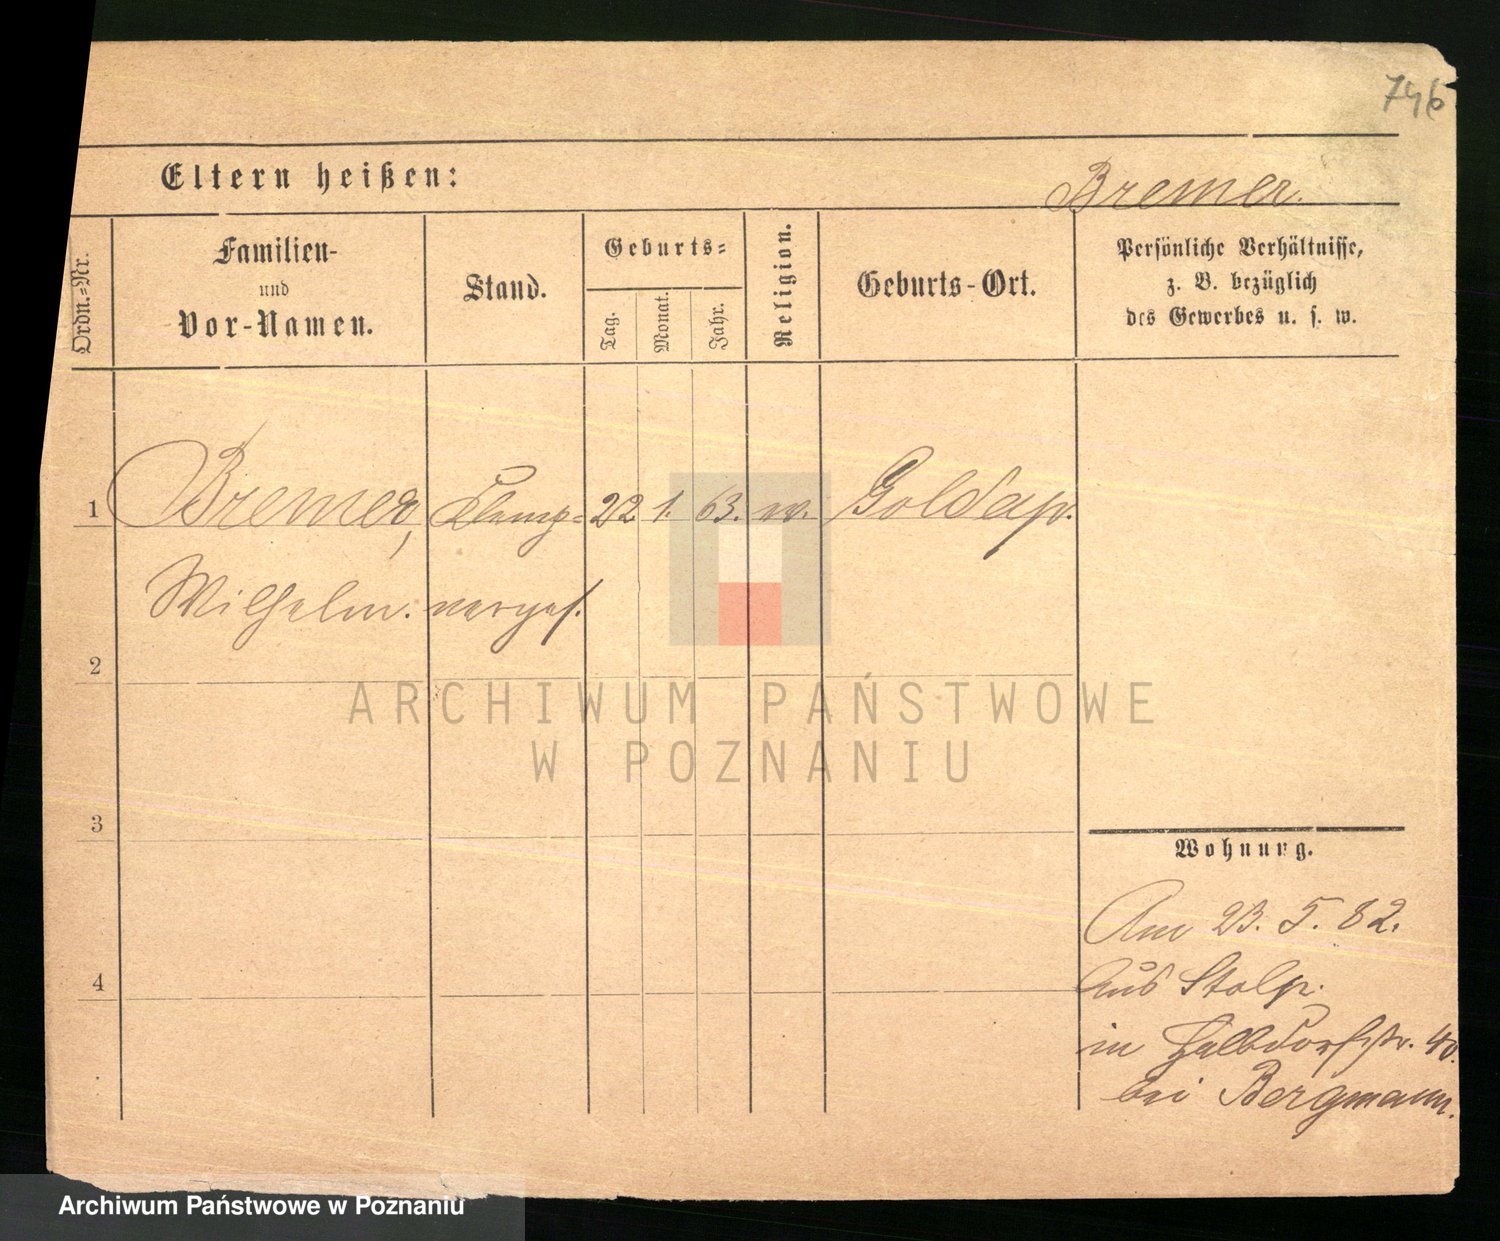 746
Eltern heißen:
Bremer.
Ordn.-Nr.
Familien-
und
Vor-Namen.
Stand.
Geburts-
Tag.
Monat.
Jahr.
Religion.
Geburts-Ort.
Persönliche Verhältnisse,
z. B. bezüglich
des Gewerbes u. s. w.
1 Bremer, Klemp- 22. 1. 63. ev. Goldap.
Wilhelm. nerges.
2
3
4
Wohnung.
Am 23. 5. 82.
Aus Stolp.
in Halbdorfstr. 40.
bei Bergmann.
ARCHIWUM PAŃSTWOWE
W POZNANIU
Archiwum Państwowe w Poznaniu